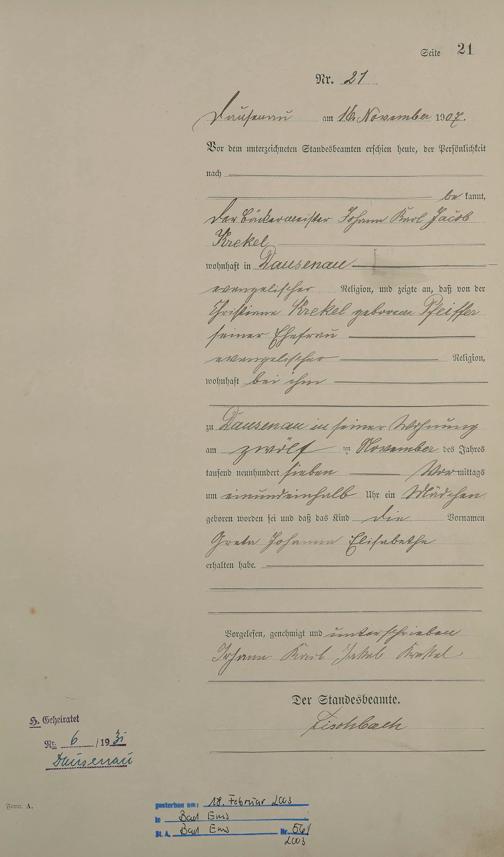 Seite 21
Nr. 21
Dausenau am 16. November 1907.
Vor dem unterzeichneten Standesbeamten erschien heute, der Persönlichkeit
nach
be kannt,
der Bäckermeister Johann Karl Jacob
Krekel
wohnhaft in Dausenau
evangelischer Religion, und zeigte an, daß von der
Christiane Krekel geborenen Pfeiffer
seiner Ehefrau
evangelischer Religion,
wohnhaft bei ihm
zu Dausenau in seiner Wohnung
am zwölf ten November des Jahres
tausend neunhundert sieben Vor mittags
um einundeinhalb Uhr ein Mädchen
geboren worden sei und daß das Kind die Vornamen
Greta Johanna Elisabethe
erhalten habe.
Vorgelesen, genehmigt und unterschrieben
Johann Karl Jakob Krekel
Der Standesbeamte.
Fischbach
H. Geheiratet
Nr. 6 /1931
Dausenau
Form. A.
gestorben am: 18. Februar 2003
in Bad Ems
St. A. Bad Ems Nr. 56/
2003